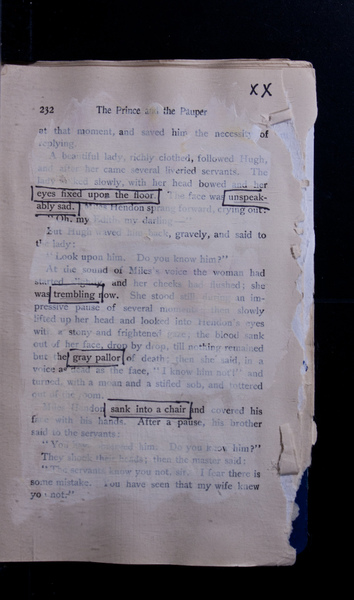 XX
232 The Prince and the Pauper
at that moment, and saved him the necessity of
replying.
A beautiful lady, richly clothed, followed Hugh,
and after her came several liveried servants. The
lady walked slowly, with her head bowed and her
eyes fixed upon the floor. The face was unspeak-
ably sad. Miles Hendon sprang forward, crying out:
"Oh, my Edith, my darling—"
But Hugh waved him back, gravely, and said to
the lady:
"Look upon him. Do you know him?"
At the sound of Miles's voice the woman had
started slightly, and her cheeks had flushed; she
was trembling now. She stood still, during an im-
pressive pause of several moments; then slowly
lifted up her head and looked into Hendon's eyes
with a stony and frightened gaze; the blood sank
out of her face, drop by drop, till nothing remained
but the gray pallor of death; then she said, in a
voice as dead as the face, "I know him not!" and
turned, with a moan and a stifled sob, and tottered
out of the room.
Miles Hendon sank into a chair and covered his
face with his hands. After a pause, his brother
said to the servants:
"You have observed him. Do you know him?"
They shook their heads; then the master said:
"The servants know you not, sir. I fear there is
some mistake. You have seen that my wife knew
you not."